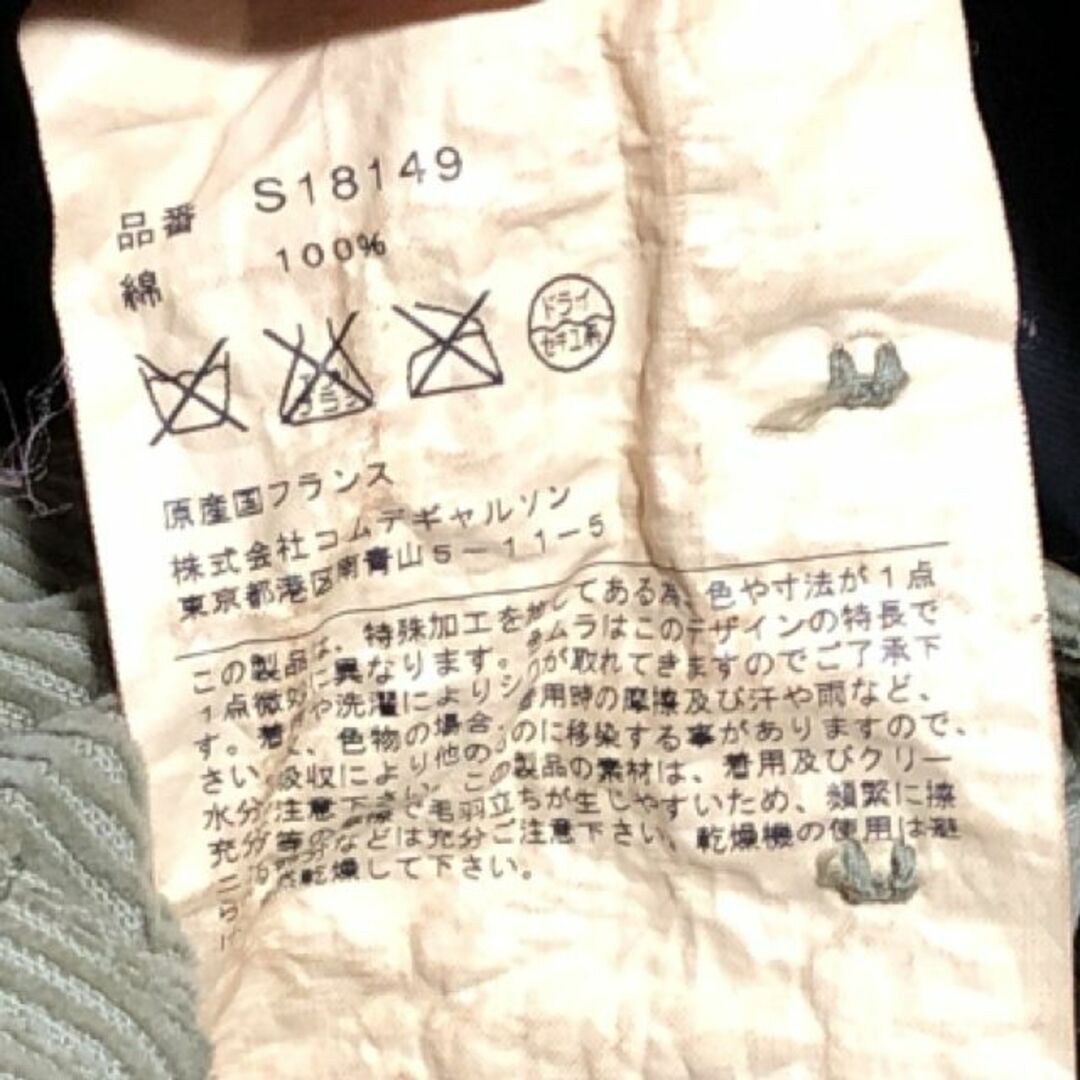 品番 S18149
綿 100%
ドライ
セキユ系
原産国フランス
株式会社コムデギャルソン
東京都港区南青山5-11-5
この製品は、特殊加工を施してある為、色や寸法が1点
1点微妙に異なります。ムラはこのデザインの特長で
す。着用や洗濯により が取れてきますのでご了承下
さい。 色物の場合、着用時の摩擦及び汗や雨など、
水分の吸収により他のものに移染する事がありますので、
充分ご注意下さい。この製品の素材は、着用及びクリー
で毛羽立ちが生じやすいため、頻繁に擦
などは充分ご注意下さい。乾燥機の使用は避
乾燥して下さい。